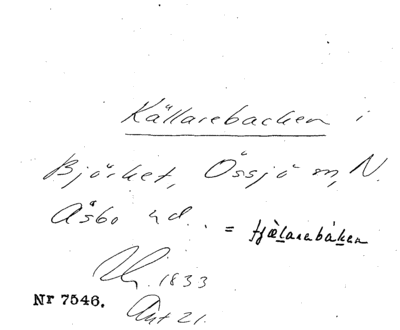 Källarebacken i
Björket, Össjö sn, N.
Åsbo hd. = tjælarebaken
1833
Nr 7546. Ant 21.